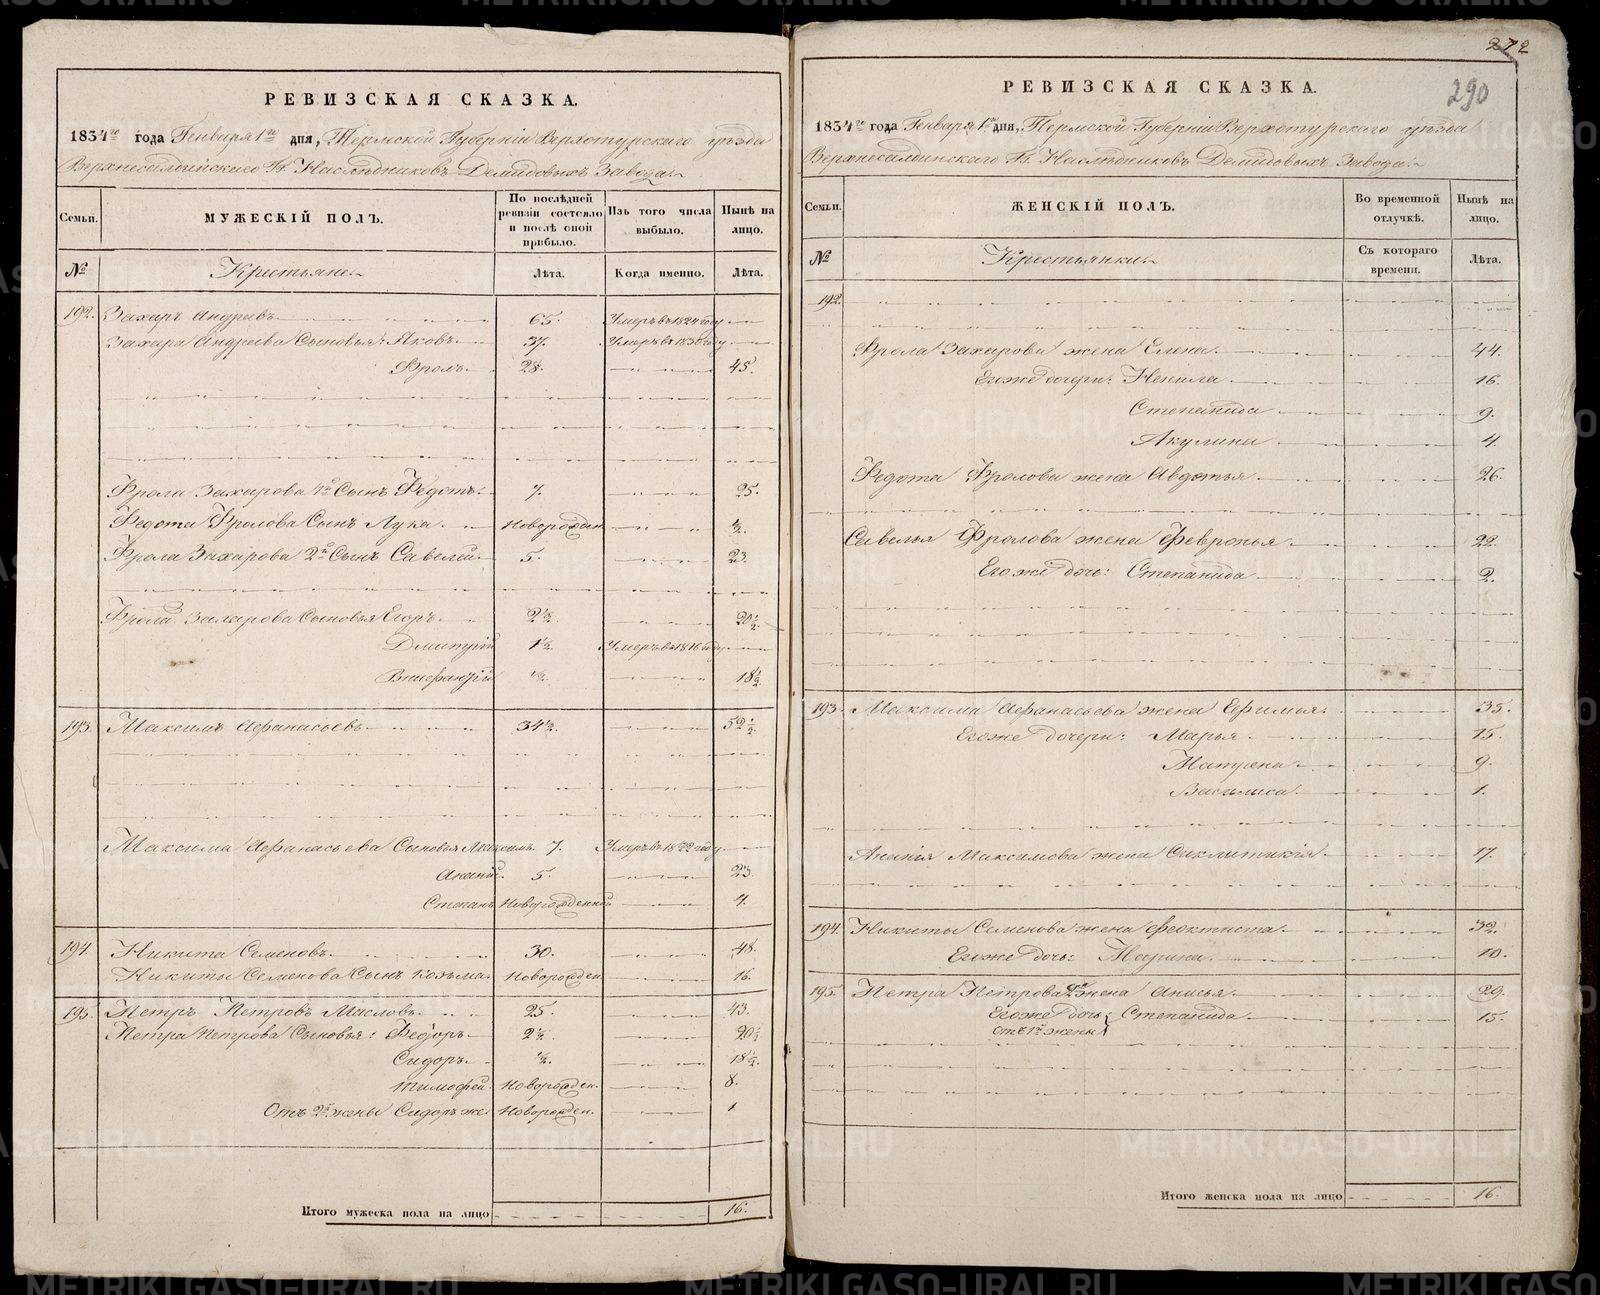 РЕВИЗСКАЯ СКАЗКА.
1834го года Генваря 1го дня, Пермской Губерніи Верхотурскаго уѣзда
Верхнесалдинскаго Гг. Наслѣдниковъ Демидовыхъ Завода
Семьи.
МУЖЕСКІЙ ПОЛЪ.
По послѣдней ревизіи состояло и послѣ оной прибыло.
Изъ того числа выбыло.
Нынѣ на лицо.
№
Крестьяне
Лѣта.
Когда именно.
Лѣта.
192. Захаръ Андреевъ 65. Умеръ въ 1824 году
Захара Андреева Сыновья: Яковъ 37. Умеръ въ 1830 году
Фролъ 28. 45.
Фрола Захарова 1й Сынъ Федотъ 7. 25.
Федота Фролова Сынъ Лука Новорожден. ½.
Фрола Захарова 2й Сынъ Савелей 5. 23.
Фрола Захарова Сыновья Егоръ 2½. 20½.
Дмитрій 1½. Умеръ въ 1816 году
½. 18½.
193. Максимъ Афанасьевъ 34½. 52½.
Максима Афанасьева Сыновья Максимъ 7. Умеръ въ 1822 году
Ананій 5. 23.
Степанъ Новорожденной
194. Никита Семеновъ 30. 48.
Никиты Семенова Сынъ Козьма Новорожден. 16.
195. Петръ Петровъ Масловъ 25. 43.
Петра Петрова Сыновья: Федоръ 2½. 20½
Сидоръ ½. 18½.
Тимофей Новорожден. 8.
Отъ 2й жены Сидоръ же Новорожден. 1
Итого мужеска пола на лицо 16.
272
290
РЕВИЗСКАЯ СКАЗКА.
1834го года Генваря 1го дня, Пермской Губерніи Верхотурскаго уѣзда
Верхнесалдинскаго Гг. Наслѣдниковъ Демидовыхъ Завода
Семьи.
ЖЕНСКІЙ ПОЛЪ.
Во временной отлучкѣ.
Нынѣ на лицо.
№
Крестьянки
Съ котораго времени.
Лѣта.
192.
Фрола Захарова жена Елена 44.
Егоже дочери: Ненила 16.
Степанида 9.
Акулина 4.
Федота Фролова жена Авдотья 26.
Савелья Фролова жена Февронья 22.
Егоже дочь: Степанида 2.
193. Максима Афанасьева жена Ефимья 35.
Егоже дочери: Марья 15.
Матрена 9.
Василиса 1.
Ананія Максимова жена Сиклитикія 17.
194. Никиты Семенова жена Феоктиста 32.
Егоже дочь: Марина 10.
195. Петра Петрова 2я жена Анисья 29.
Егоже дочь Степанида 15.
отъ 1й жены
Итого женска пола на лицо 16.
METRIKI.GASO-URAL.RU